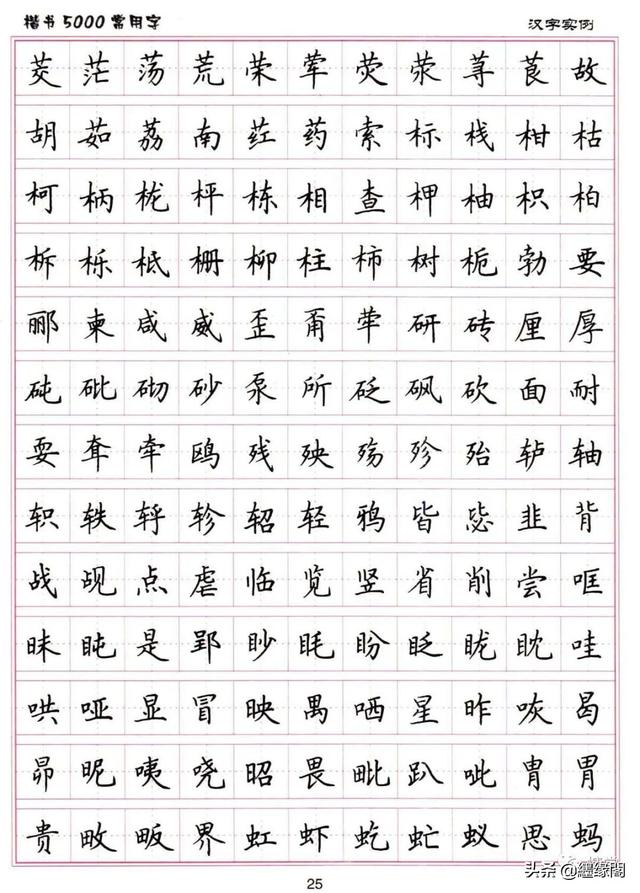 楷书5000常用字 汉字实例
茭茫荡荒荣荤荧荥荨茛故
胡茹荔南荭药索标栈柑枯
柯柄栊枰栋相查柙柚枳柏
柝栎柢栅柳柱柿树栀勃要
郦柬咸威歪甭荜研砖厘厚
砘砒砌砂泵所砭砜砍面耐
耍耷牵鸥残殃殇殄殆轳轴
轵轶轷轸轺轻鸦皆毖韭背
战觇点虐临览竖省削尝哐
昧盹是郢眇眊盼眨昽眈哇
哄哑显冒映禺哂星昨咴曷
昴昵咦哓昭畏毗趴呲胄胃
贵畋畈界虹虾虼虻蚁思蚂
25
头条@缠缘阁